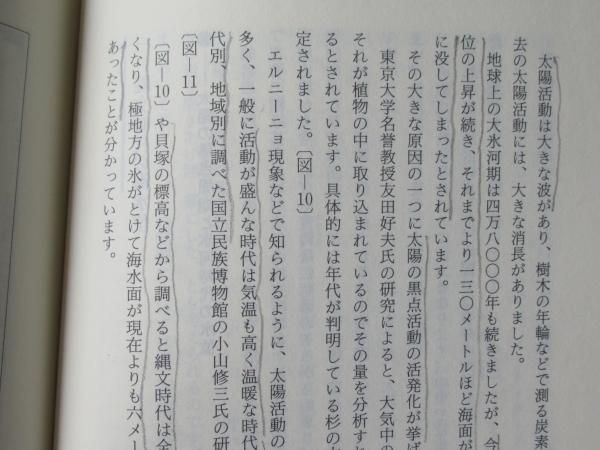 太陽活動は大きな波があり、樹木の年輪などで測る炭素
去の太陽活動には、大きな消長がありました。
地球上の大氷河期は四万八〇〇〇年も続きましたが、今
位の上昇が続き、それまでより一三〇メートルほど海面が
に没してしまったとされています。
その大きな原因の一つに太陽の黒点活動の活発化が挙げ
東京大学名誉教授友田好夫氏の研究によると、大気中の
それが植物の中に取り込まれているのでその量を分析すれ
るとされています。具体的には年代が判明している杉の
定されました。〔図―10〕
エルニーニョ現象などで知られるように、太陽活動の
多く、一般に活動が盛んな時代は気温も高く温暖な時代
代別、地域別に調べた国立民族博物館の小山修三氏の研
〔図―11〕
〔図―10〕や貝塚の標高などから調べると縄文時代は全
くなり、極地方の氷がとけて海水面が現在よりも六メー
あったことが分かっています。